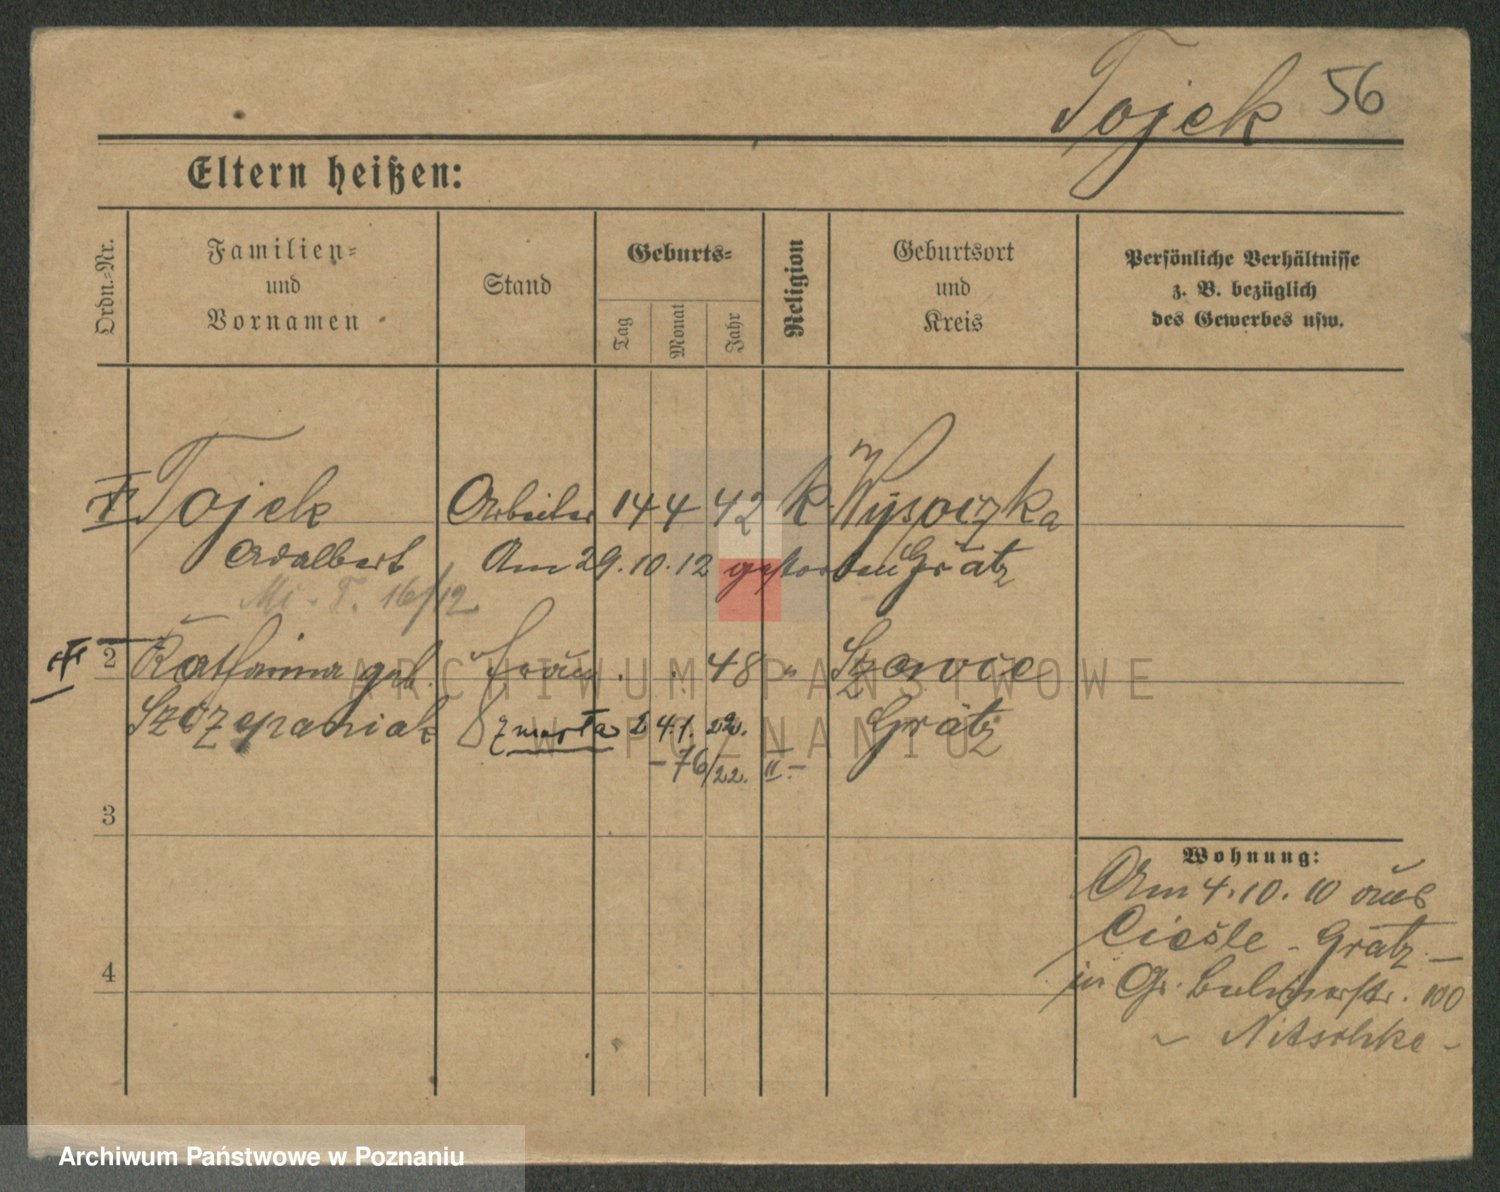 Tojek 56
Eltern heißen:
Ordn.-Nr.
Familien-
und
Vornamen
Stand
Geburts-
Tag
Monat
Jahr
Religion
Geburtsort
und
Kreis
Persönliche Verhältnisse
z. B. bezüglich
des Gewerbes usw.
Tojek Arbeiter 14 4 42 k. Wysoczka
Adalbert Am 29.10.12 gestorben Grätz
16/12
2 Katharina geb. Frau . . 48 " 
Szczepaniak zmarła 24.1.22. Grätz
-76/22. II.-
3
4
Wohnung:
Am 4.10.10 aus
Ciesle - Grätz -
in Gr. Berlinerstr. 100
~ Nitschke -
ARCHIWUM PAŃSTWOWE
W POZNANIU
Archiwum Państwowe w Poznaniu